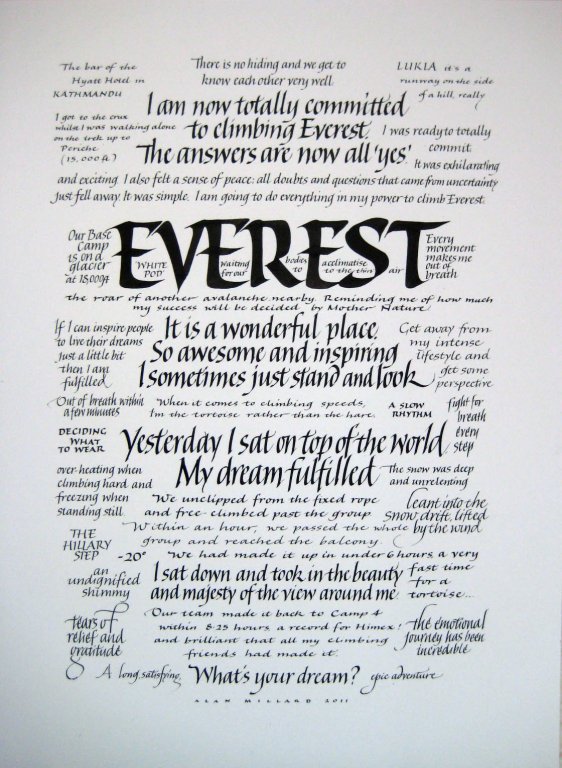 The bar of the
Hyatt Hotel in
KATHMANDU
There is no hiding and we get to
know each other very well
LUKLA it's a
runway on the side
of a hill, really
I am now totally committed
to climbing Everest.
The answers are now all 'yes'
I got to the crux
whilst I was walking alone
on the trek up to
Periche
(15,000 ft.)
I was ready to totally
commit.
It was exhilarating
and exciting. I also felt a sense of peace: all doubts and questions that came from uncertainty
just fell away. It was simple. I am going to do everything in my power to climb Everest.
Our Base
Camp
is on a
glacier
at 18,009ft
EVEREST
'WHITE
POD'
Waiting
for our
bodies
to
acclimatise
to the thin
air
Every
movement
makes me
out of
breath
the roar of another avalanche nearby. Reminding me of how much
my success will be decided by Mother Nature.
If I can inspire people
to live their dreams
just a little bit
then I am
fulfilled
It is a wonderful place.
So awesome and inspiring
I sometimes just stand and look
Get away from
my intense
lifestyle and
get some
perspective
Out of breath within
a few minutes
When it comes to climbing speeds,
I'm the tortoise rather than the hare.
A SLOW
RHYTHM
fight for
breath
every
step
DECIDING
WHAT
TO WEAR
Yesterday I sat on top of the world
My dream fulfilled
The snow was deep
and unrelenting
over heating when
climbing hard and
freezing when
standing still
We unclipped from the fixed rope
and free-climbed past the group
I leant into the
snow drift, lifted
by the wind
Within an hour, we passed the whole
group and reached the balcony.
THE
HILLARY
STEP
-20°
We had made it up in under 6 hours a very
fast time
for a
tortoise...
an
undignified
shimmy
I sat down and took in the beauty
and majesty of the view around me
tears of
relief and
gratitude
Our team made it back to Camp 4
within 8.25 hours a record for Himex!
and brilliant that all my climbing
friends had made it.
the emotional
journey has been
incredible
A long, satisfying,
What's your dream?
epic adventure
ALAN MILLARD 2011